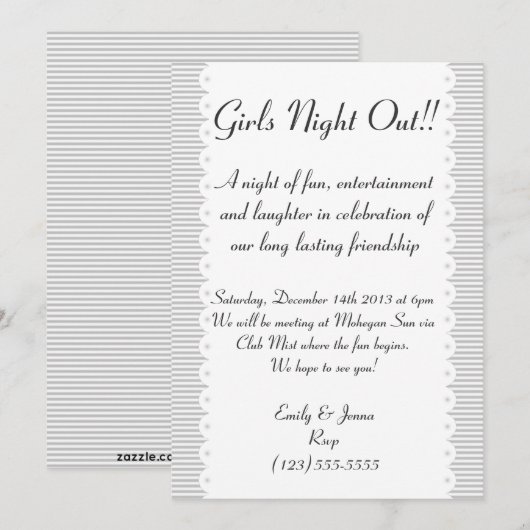 Girls Night Out!!
A night of fun, entertainment
and laughter in celebration of
our long lasting friendship
Saturday, December 14th 2013 at 6pm
We will be meeting at Mohegan Sun via
Club Mist where the fun begins.
We hope to see you!
Emily & Jenna
Rsvp
(123)555-5555
zazzle.co